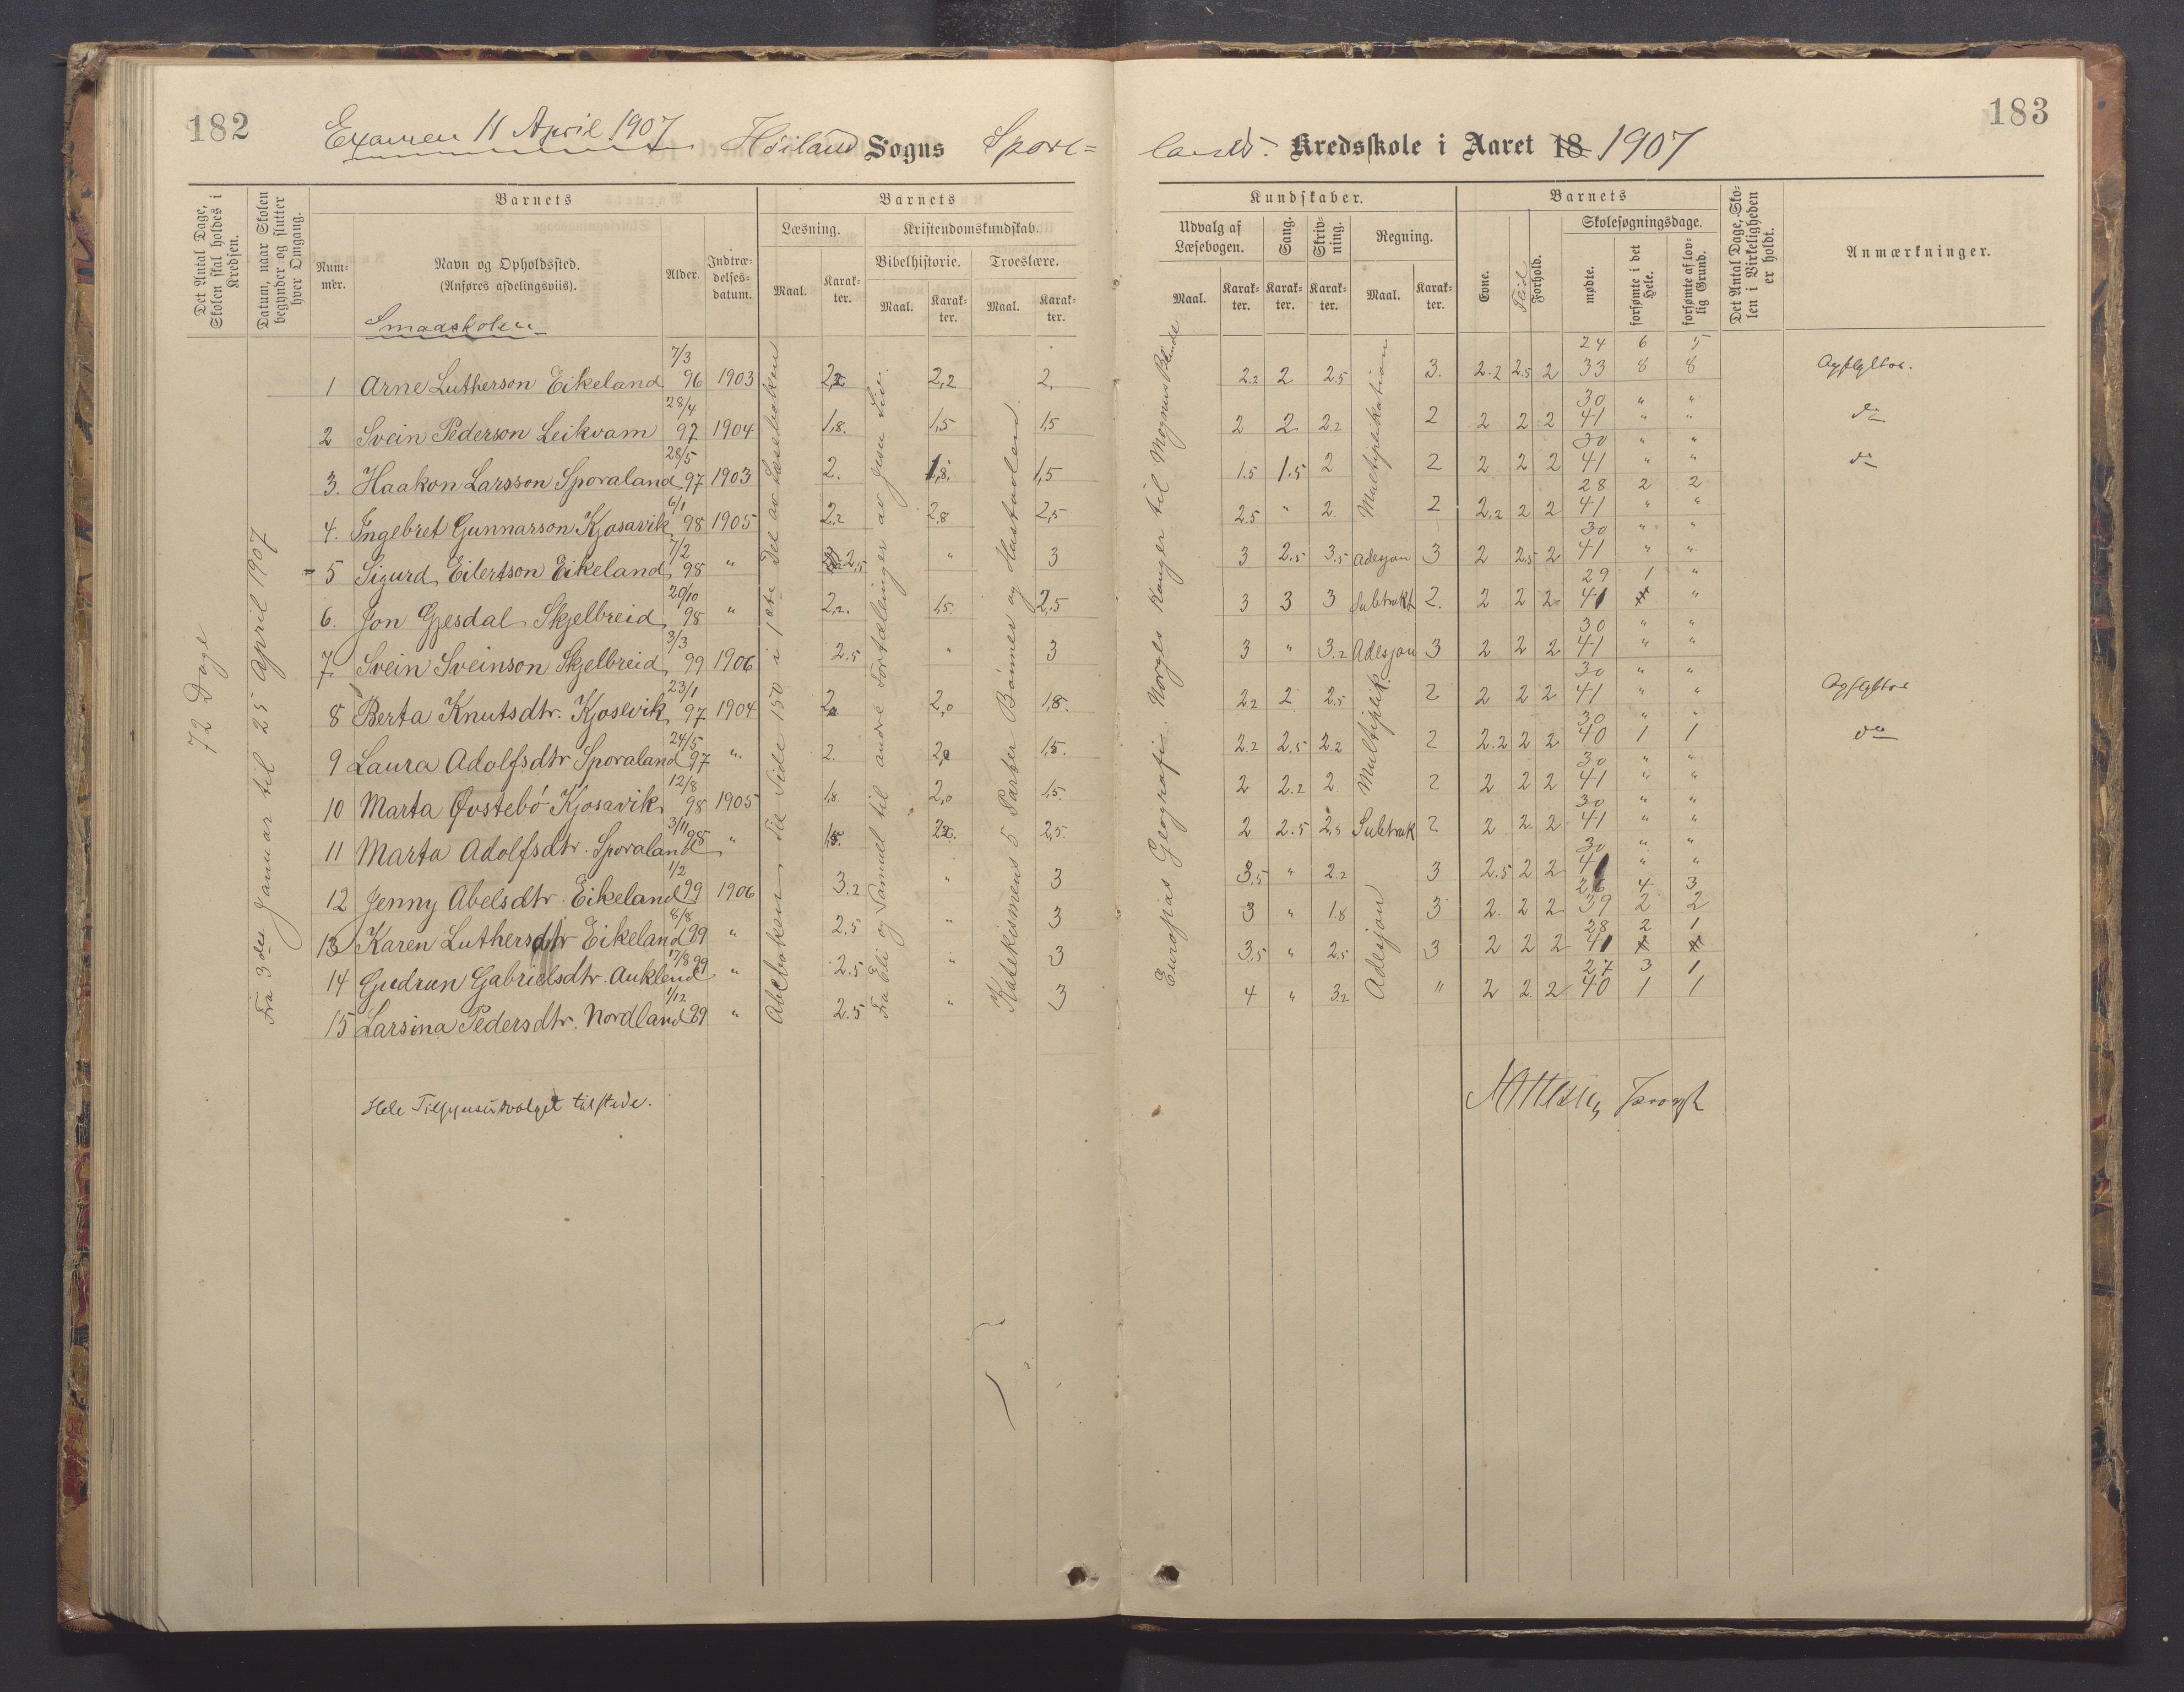 182
Examen 11 April 1907 Höiland Sogns Spore=
Det Antal Dage, Skolen skal holdes i Kredsen.
Datum, naar Skolen begynder og slutter hver Omgang.
Barnets
Num-mer.
Navn og Opholdssted.
(Anføres afdelingsviis).
Alder.
Indtræ-delses-datum.
Barnets
Læsning.
Kristendomskundskab.
Bibelhistorie.
Troeslære.
Maal.
Karak-ter.
Maal.
Karak-ter.
Maal.
Karak-ter.
Smaaskolen
72 Dage
Fra 3die Januar til 25 April 1907
1 Arne Lutherson Eikeland 7/3 96 1903 2,2 2,2 2,
2 Svein Pederson Leikvam 28/4 97 1904 1,8. 1,5 1,5
3. Haakon Larsson Sporaland 28/5 97 1903 2. 1,8. 1,5
4. Ingebret Gunnarson Kjosavik 6/1 98 1905 2,2 2,8 2,5
5 Sigurd Eilertson Eikeland 7/2 98 " 2,5 " 3
6. Jon Gjesdal Skjelbreid 20/10 98 " 2,2. 1,5 2,5
7. Svein Sveinson Skjelbreid 3/3 99 1906 2.5 " 3
8 Berta Knutsdtr. Kjosevik 23/1 97 1904 2, 2,0 1,8.
9 Laura Adolfsdtr Sporaland 24/5 97 " 2. 2,0 1,5.
10 Marta Øvstebö Kjosavik 12/8 98 1905 1,8 2,0 1,5.
11 Marta Adolfsdtr. Sporaland 3/11 98 " 1,8. 2,2. 2,5.
12 Jenny Abelsdtr. Eikeland 1/2 99 1906 3.2 " 3
13 Karen Luthersdtr Eikeland 8/8 99 " 2.5 " 3
14 Gudrun Gabrielsdtr. Aukland 17/8 99 " 2.5 " 3
15 Larsina Pedersdtr. Nordland 1/12 99 " 2.5 " 3
Abcboken til Side 150 i 1ste Del av Læseboken
Fra Eli og Samuel til andre Fortællinger av Jesu Liv.
Katekismens 5 Parter Bønner og Hustavlen.
Hele Tilsynsudvalget tilstede.
183
lands. Kredsskole i Aaret 18 1907
Kundskaber.
Udvalg af Læsebogen.
Sang.
Skriv-ning.
Regning.
Maal.
Karak-ter.
Karak-ter.
Karak-ter.
Maal.
Karak-ter.
Barnets
Evne.
Flid
Forhold.
Skolesøgningsdage.
mødte.
forsømte i det Hele.
forsømte af lov-lig Grund.
Det Antal Dage, Sko-len i Virkeligheden er holdt.
Anmærkninger.
Europas Geografi. Norges Konger til Magnus Blinde
Multiplikation
24 6 5
2.2 2 2.5 3. 2.2 2.5 2 33 8 8 Opflyttes.
30 " "
2 2 2.2 2 2 2 2 41 " " do
30 " "
1.5 1.5 2 2 2 2 2 41 " " do
28 2 2
2.5 " 2. 2 2.2 2 2 41 " "
30 " "
3 2.5 3.5 Adesjon 3 2 2.5 2 41 " "
29 1 "
3 3 3 Subtrakt 2. 2 2 2 41 "
30 " "
3 " 3.2 Adesjon 3 2 2 2 41 " "
30 " "
Multiplik.
2.2 2 2.5 2 2 2 2 41 " " Opflyttes
30 " "
2.2 2.5 2.2 2 2.2 2 2 40 1 1 do
30 " "
2 2.2 2 2 2 2 2 41 " "
30 " "
2 2.5 2.5 Subtrak 2 2 2 2 41 " "
30 " "
Adesjon
3,5 " 2.2 3 2.5 2 2 41 " "
26 4 3
3 " 1.8 3 2. 2 2 39 2 2
28 2 1
3,5 " 2.5 3 2 2 2 41
27 3 1
4 " 3.2 " 2 2 2 40 1 1